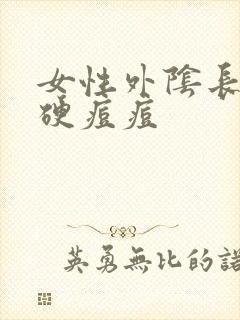 女性外陰長
硬痘痘
英勇無比的諾